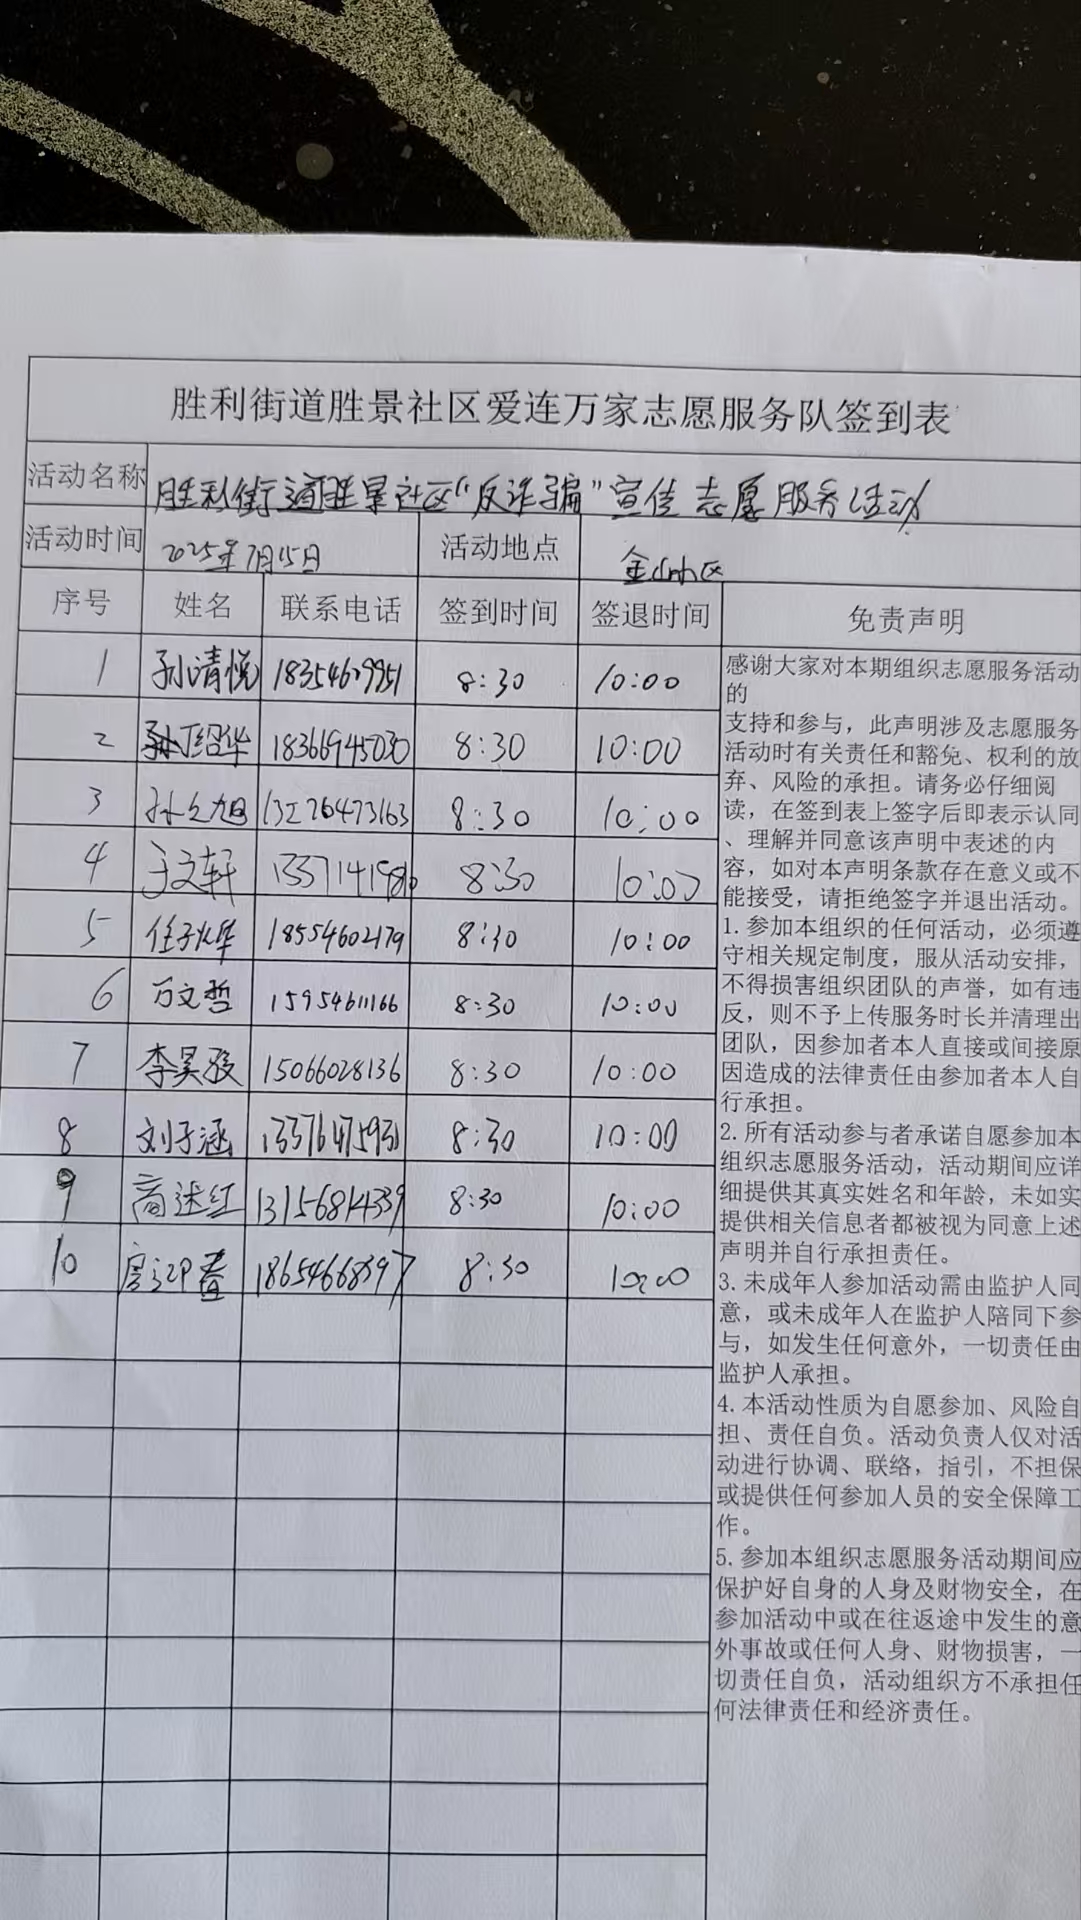 胜利街道胜景社区爱连万家志愿服务队签到表
活动名称 胜利街道胜景社区“反诈骗”宣传志愿服务活动
活动时间 2025年7月15日 活动地点 金山小区
序号 姓名 联系电话 签到时间 签退时间 免责声明
1 孙清悦 8:30 10:00
2 孙绍华 18366945030 8:30 10:00
3 8:30 10:00
4 于文轩 8:30 10:00
5 18554602179 8:30 10:00
6 万文哲 15954611166 8:30 10:00
7 李昊骏 15066028136 8:30 10:00
8 刘子涵 8:30 10:00
9 商述红 13156814339 8:30 10:00
10 8:30 10:00
感谢大家对本期组织志愿服务活动
的
支持和参与，此声明涉及志愿服务
活动时有关责任和豁免、权利的放
弃、风险的承担。请务必仔细阅
读，在签到表上签字后即表示认同
、理解并同意该声明中表述的内
容，如对本声明条款存在意义或不
能接受，请拒绝签字并退出活动。
1.参加本组织的任何活动，必须遵
守相关规定制度，服从活动安排，
不得损害组织团队的声誉，如有违
反，则不予上传服务时长并清理出
团队，因参加者本人直接或间接原
因造成的法律责任由参加者本人自
行承担。
2.所有活动参与者承诺自愿参加本
组织志愿服务活动，活动期间应详
细提供其真实姓名和年龄，未如实
提供相关信息者都被视为同意上述
声明并自行承担责任。
3.未成年人参加活动需由监护人同
意，或未成年人在监护人陪同下参
与，如发生任何意外，一切责任由
监护人承担。
4.本活动性质为自愿参加、风险自
担、责任自负。活动负责人仅对活
动进行协调、联络，指引，不担保
或提供任何参加人员的安全保障工
作。
5.参加本组织志愿服务活动期间应
保护好自身的人身及财物安全，在
参加活动中或在往返途中发生的意
外事故或任何人身、财物损害，一
切责任自负，活动组织方不承担任
何法律责任和经济责任。